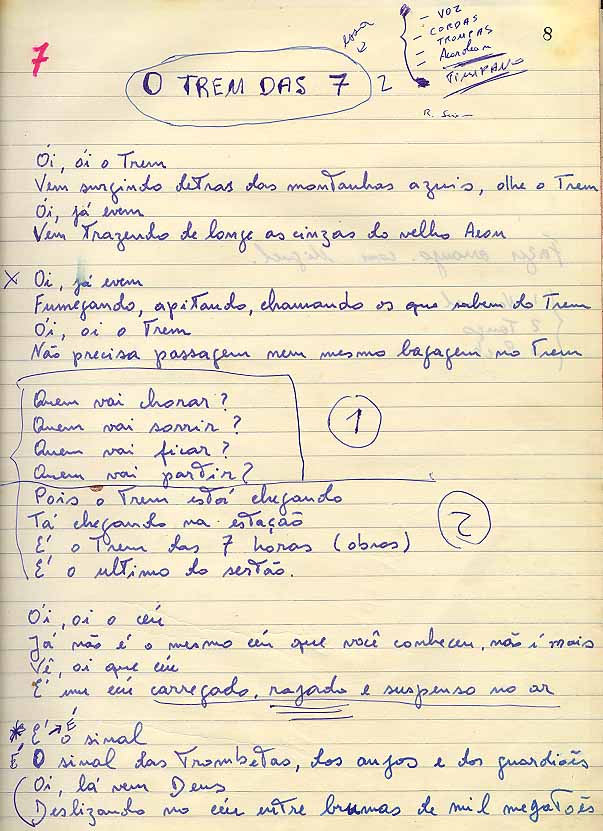 7
8
- VOZ
- CORDAS
- TROMPAS
- Acordeon
TIMPANO
O TREM DAS 7
2
R. Seixas
Ói, ói o Trem
Vem surgindo detras das montanhas azuis, olhe o Trem
Ói, já evem
Vem Trazendo de longe as cinzas do velho Aeon
X Oi, já evem
Fumegando, apitando, chamando os que sabem do Trem
Ói, oi o Trem
Não precisa passagem nem mesmo bagagem no Trem
Quem vai chorar?
Quem vai sorrir?
Quem vai ficar?
Quem vai partir?
1
Pois o Trem está chegando
Tá chegando na estação
É o Trem das 7 horas (obras)
É o ultimo do sertão.
2
Oi, oi o céu
Já não é o mesmo céu que você conheceu, não é mais
Vê, oi que céu
É um céu carregado, rajado e suspenso no ar
* É → É o sinal
É O sinal das Trombetas, dos anjos e dos guardiões
Oi, lá vem Deus
Deslizando no céu entre brumas de mil megatões